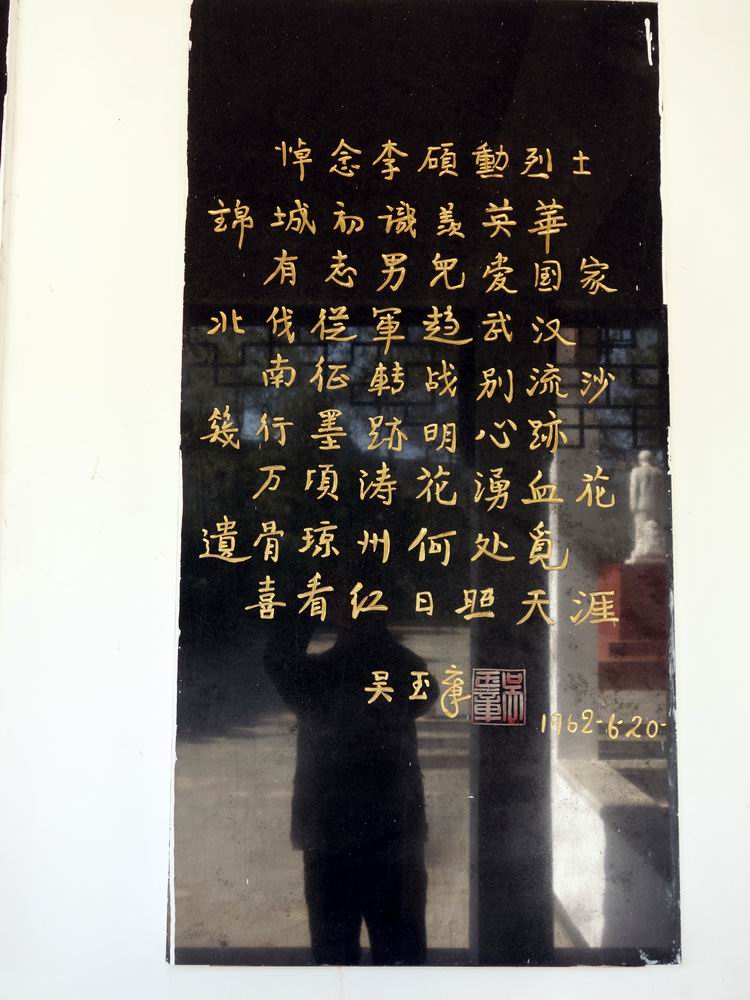 悼念李碩動烈士
錦城初識羨英華
有志男兒爱国家
北伐從軍趋武汉
南征轉战别流沙
幾行墨跡明心跡
万頃涛花湧血花
遺骨琼州何处覓
喜看红日照天涯
吴玉章
吴玉章
1962-6-20-